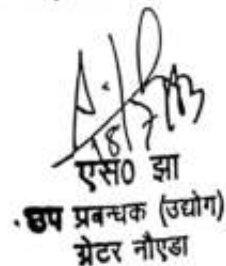 18/7/13
एस0 झा
उप प्रबन्धक (उद्योग)
ग्रेटर नौएडा